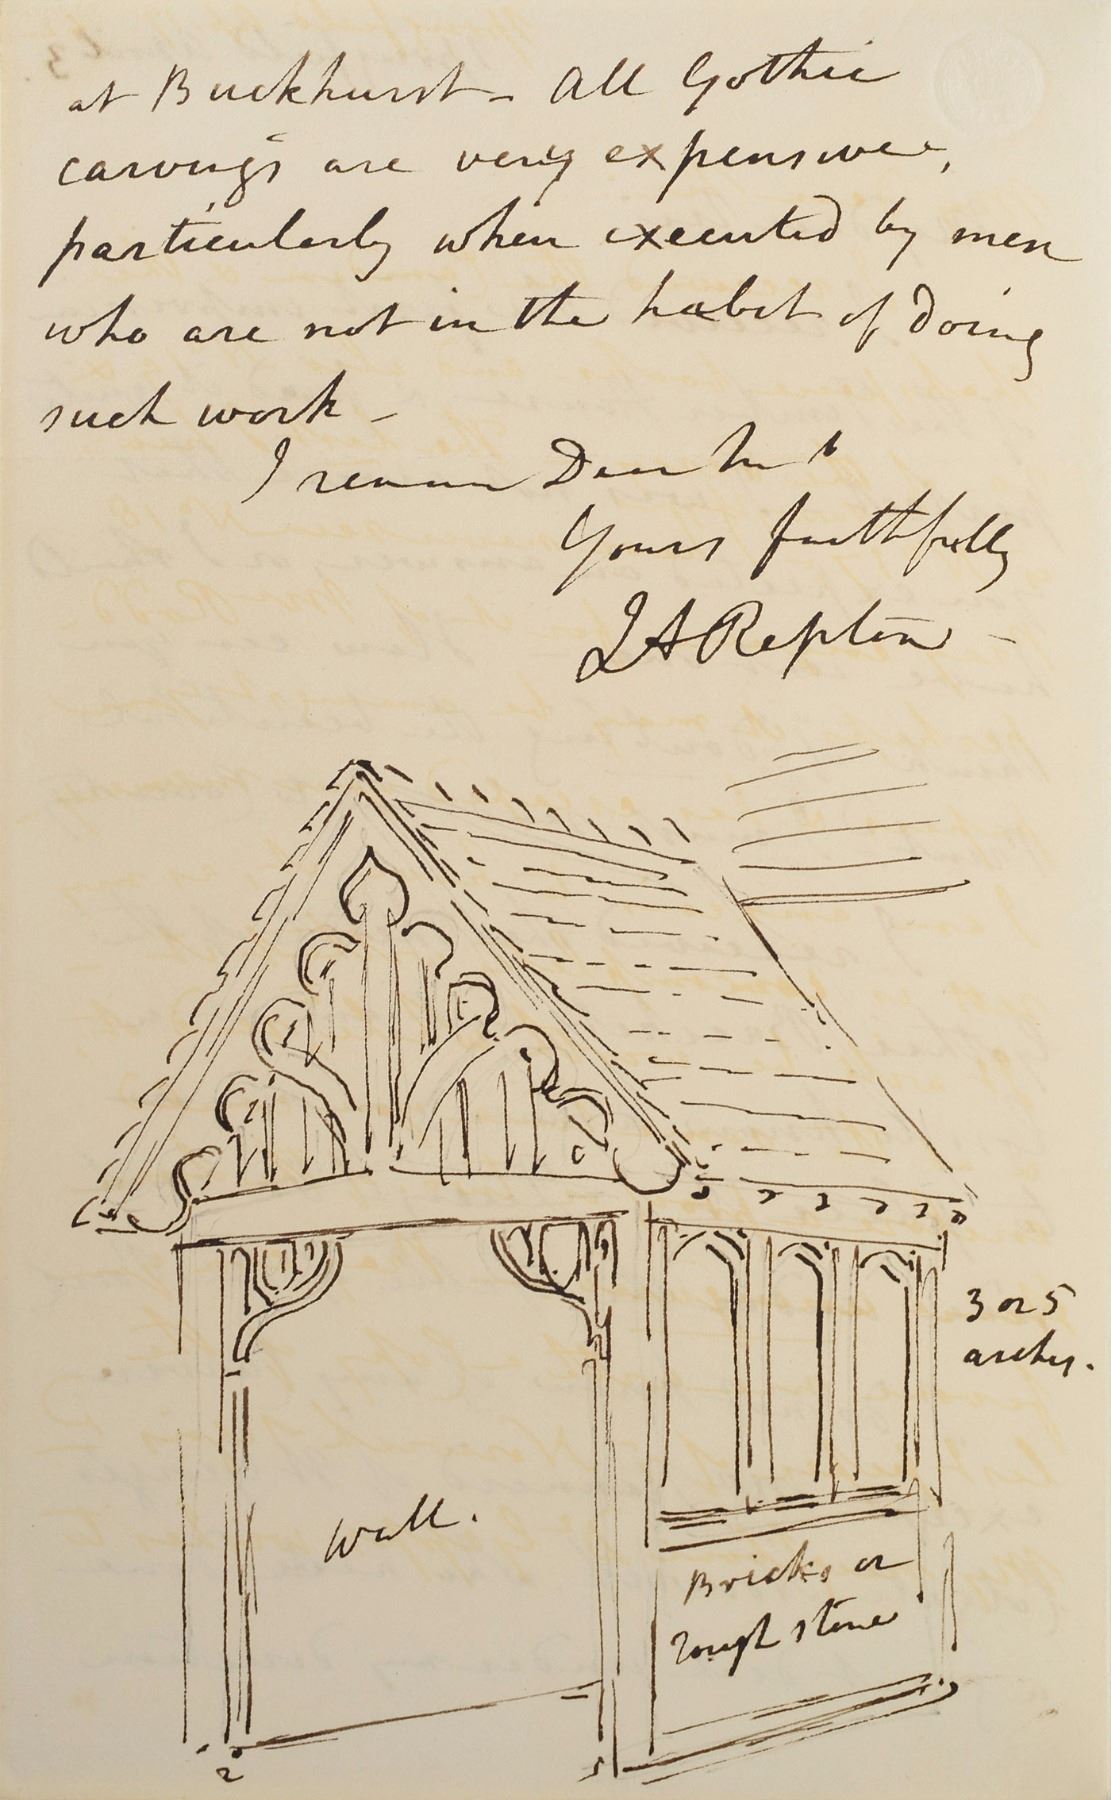 at Buckhurst - All Gothic
carvings are very expensive,
particularly when executed by men
who are not in the habit of doing
such work -
I remain Dear
Yours faithfully
J A Repton -
3 or 5
arches.
Wall.
Bricks or
rough stone